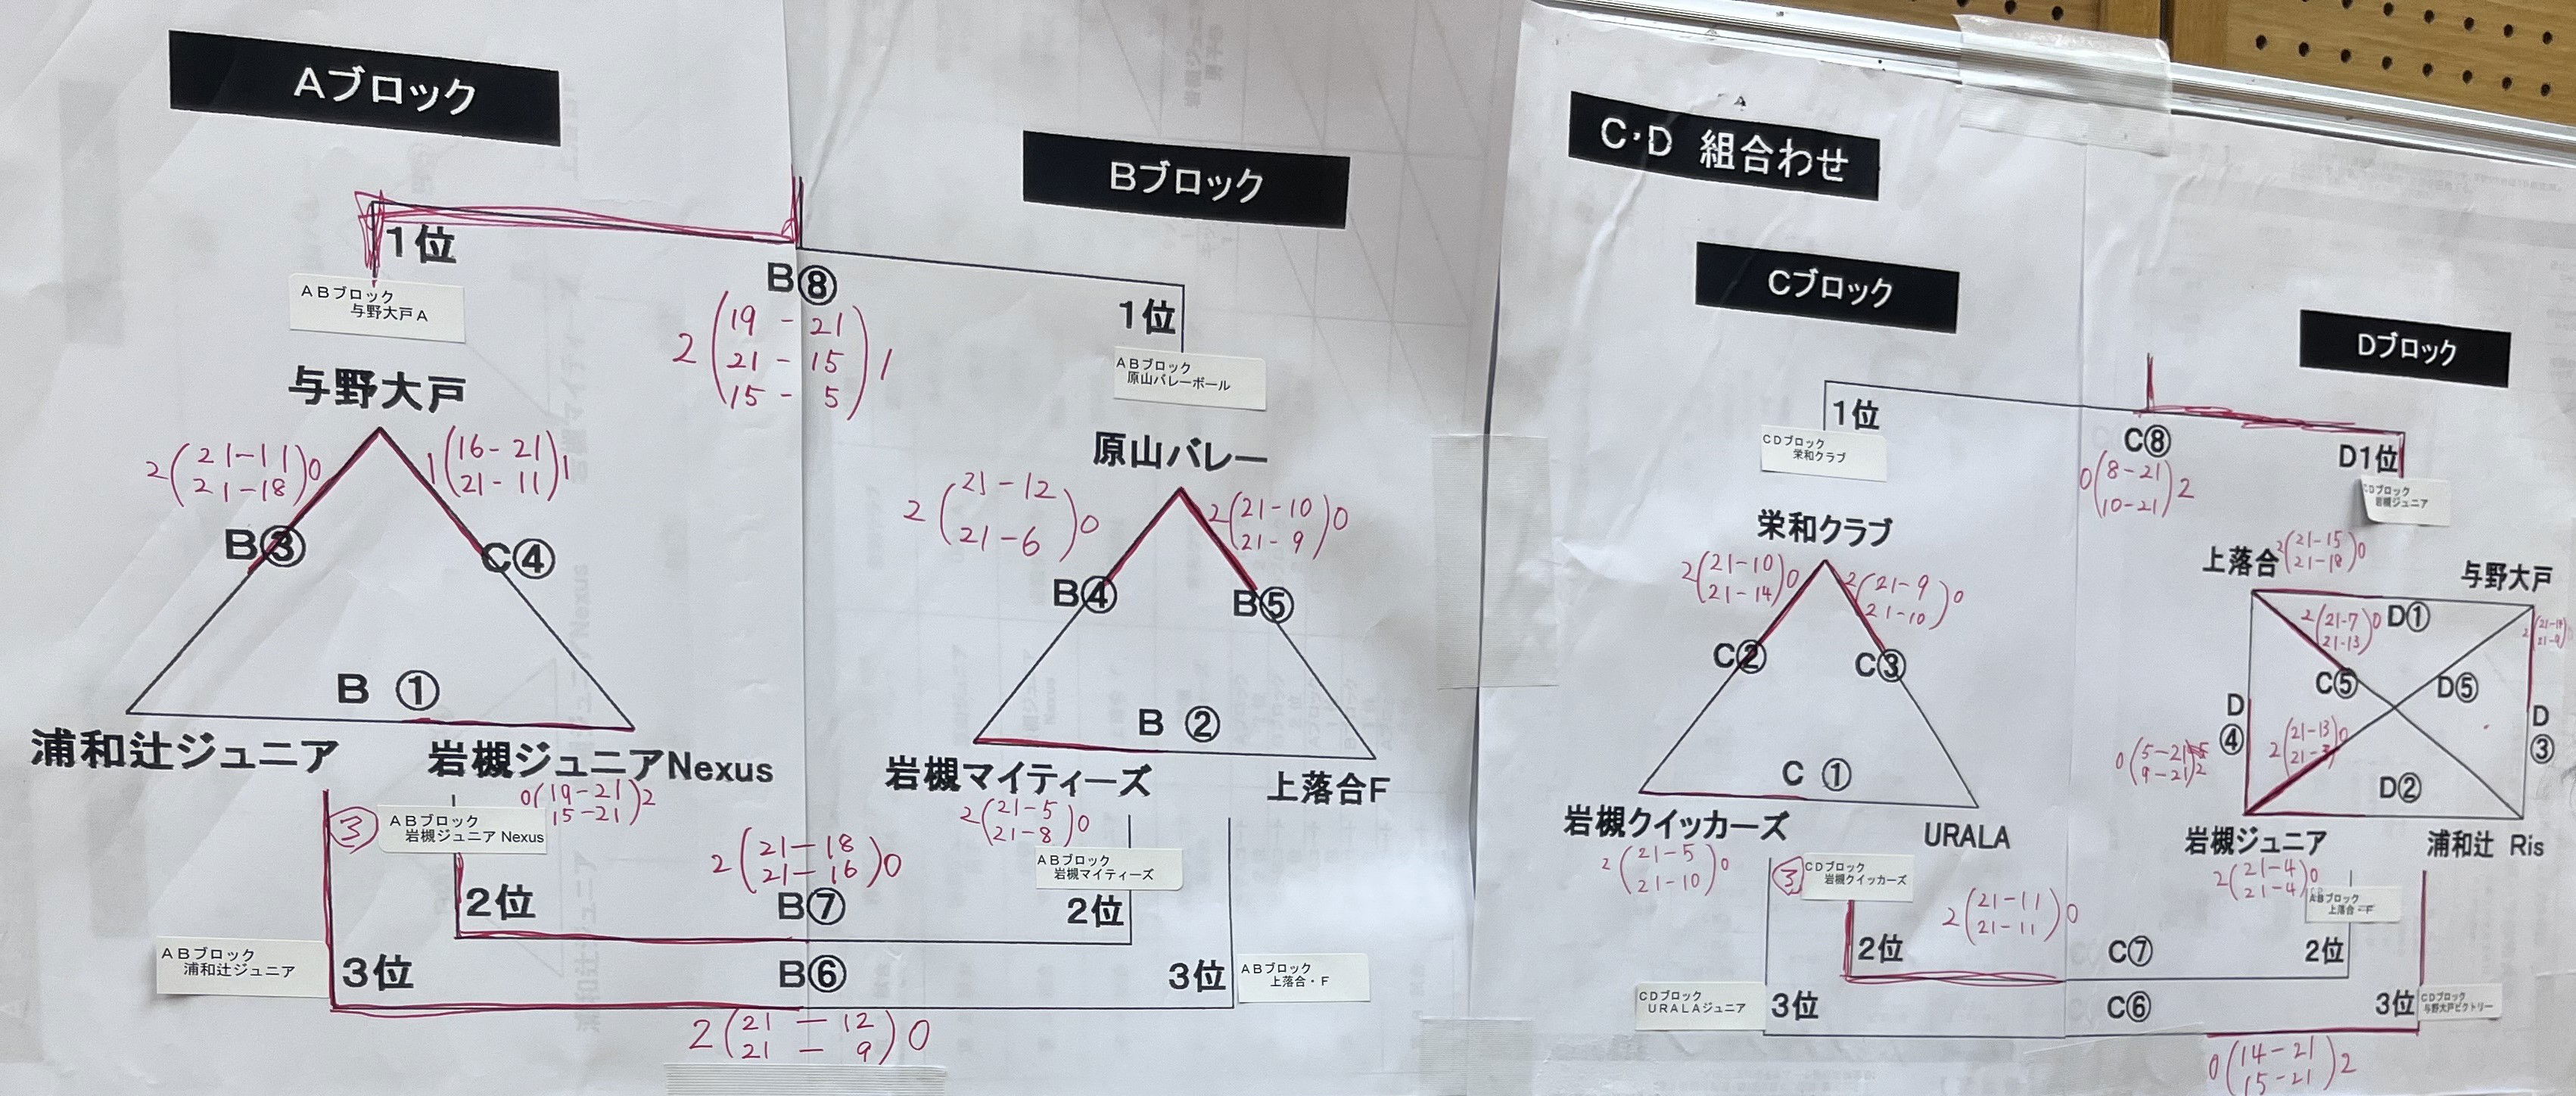 Aブロック
1位
ABブロック
与野大戸A
与野大戸
2(21-11)0
21-18
1(16-21)1
21-11
B③
C④
B ①
浦和辻ジュニア
岩槻ジュニアNexus
0(19-21)2
15-21
③
ABブロック
岩槻ジュニア Nexus
2位
ABブロック
浦和辻ジュニア
3位
B⑧
2(19-21)1
21-15
15-5
Bブロック
1位
ABブロック
原山バレーボール
原山バレー
2(21-12)0
21-6
2(21-10)0
21-9
B④
B⑤
B ②
岩槻マイティーズ
上落合F
2(21-5)0
21-8
ABブロック
岩槻マイティーズ
2位
2(21-18)0
21-16
B⑦
B⑥
3位
ABブロック
上落合・F
2(21-12)0
21-9
C・D 組合わせ
Cブロック
1位
CDブロック
栄和クラブ
栄和クラブ
2(21-10)0
21-14
2(21-9)0
21-10
C②
C③
C ①
岩槻クイッカーズ
URALA
2(21-5)0
21-10
③
CDブロック
岩槻クイッカーズ
2位
2(21-11)0
21-11
CDブロック
URALAジュニア
3位
C⑦
C⑥
C⑧
0(8-21)2
10-21
Dブロック
D1位
CDブロック
岩槻ジュニア
上落合
2(21-15)0
21-18
与野大戸
D①
2(21-7)0
21-13
C⑤
D⑤
D
④
D
③
0(5-21)2
9-21
2(21-13)0
D②
岩槻ジュニア
浦和辻 Ris
2(21-4)0
21-4
ABブロック
上落合
2位
3位
CDブロック
与野大戸ビクトリー
0(14-21)2
15-21